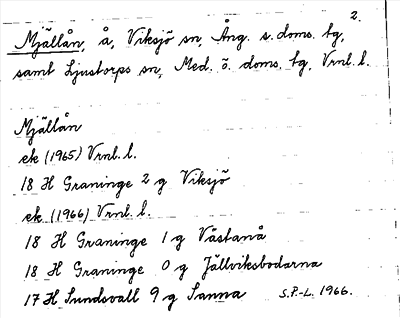 2.
Mjällån, å, Viksjö sn, Ång. s. doms. tg,
samt Ljustorps sn, Med. ö. doms. tg, Vrnl. l.
Mjällån
ek (1965) Vrnl. l.
18 H Graninge 2 g Viksjö
ek (1966) Vrnl. l.
18 H Graninge 1 g Västanå
18 H Graninge 0 g Jällviksbodarna
17 H Sundsvall 9 g Sanna S.P.-L. 1966.